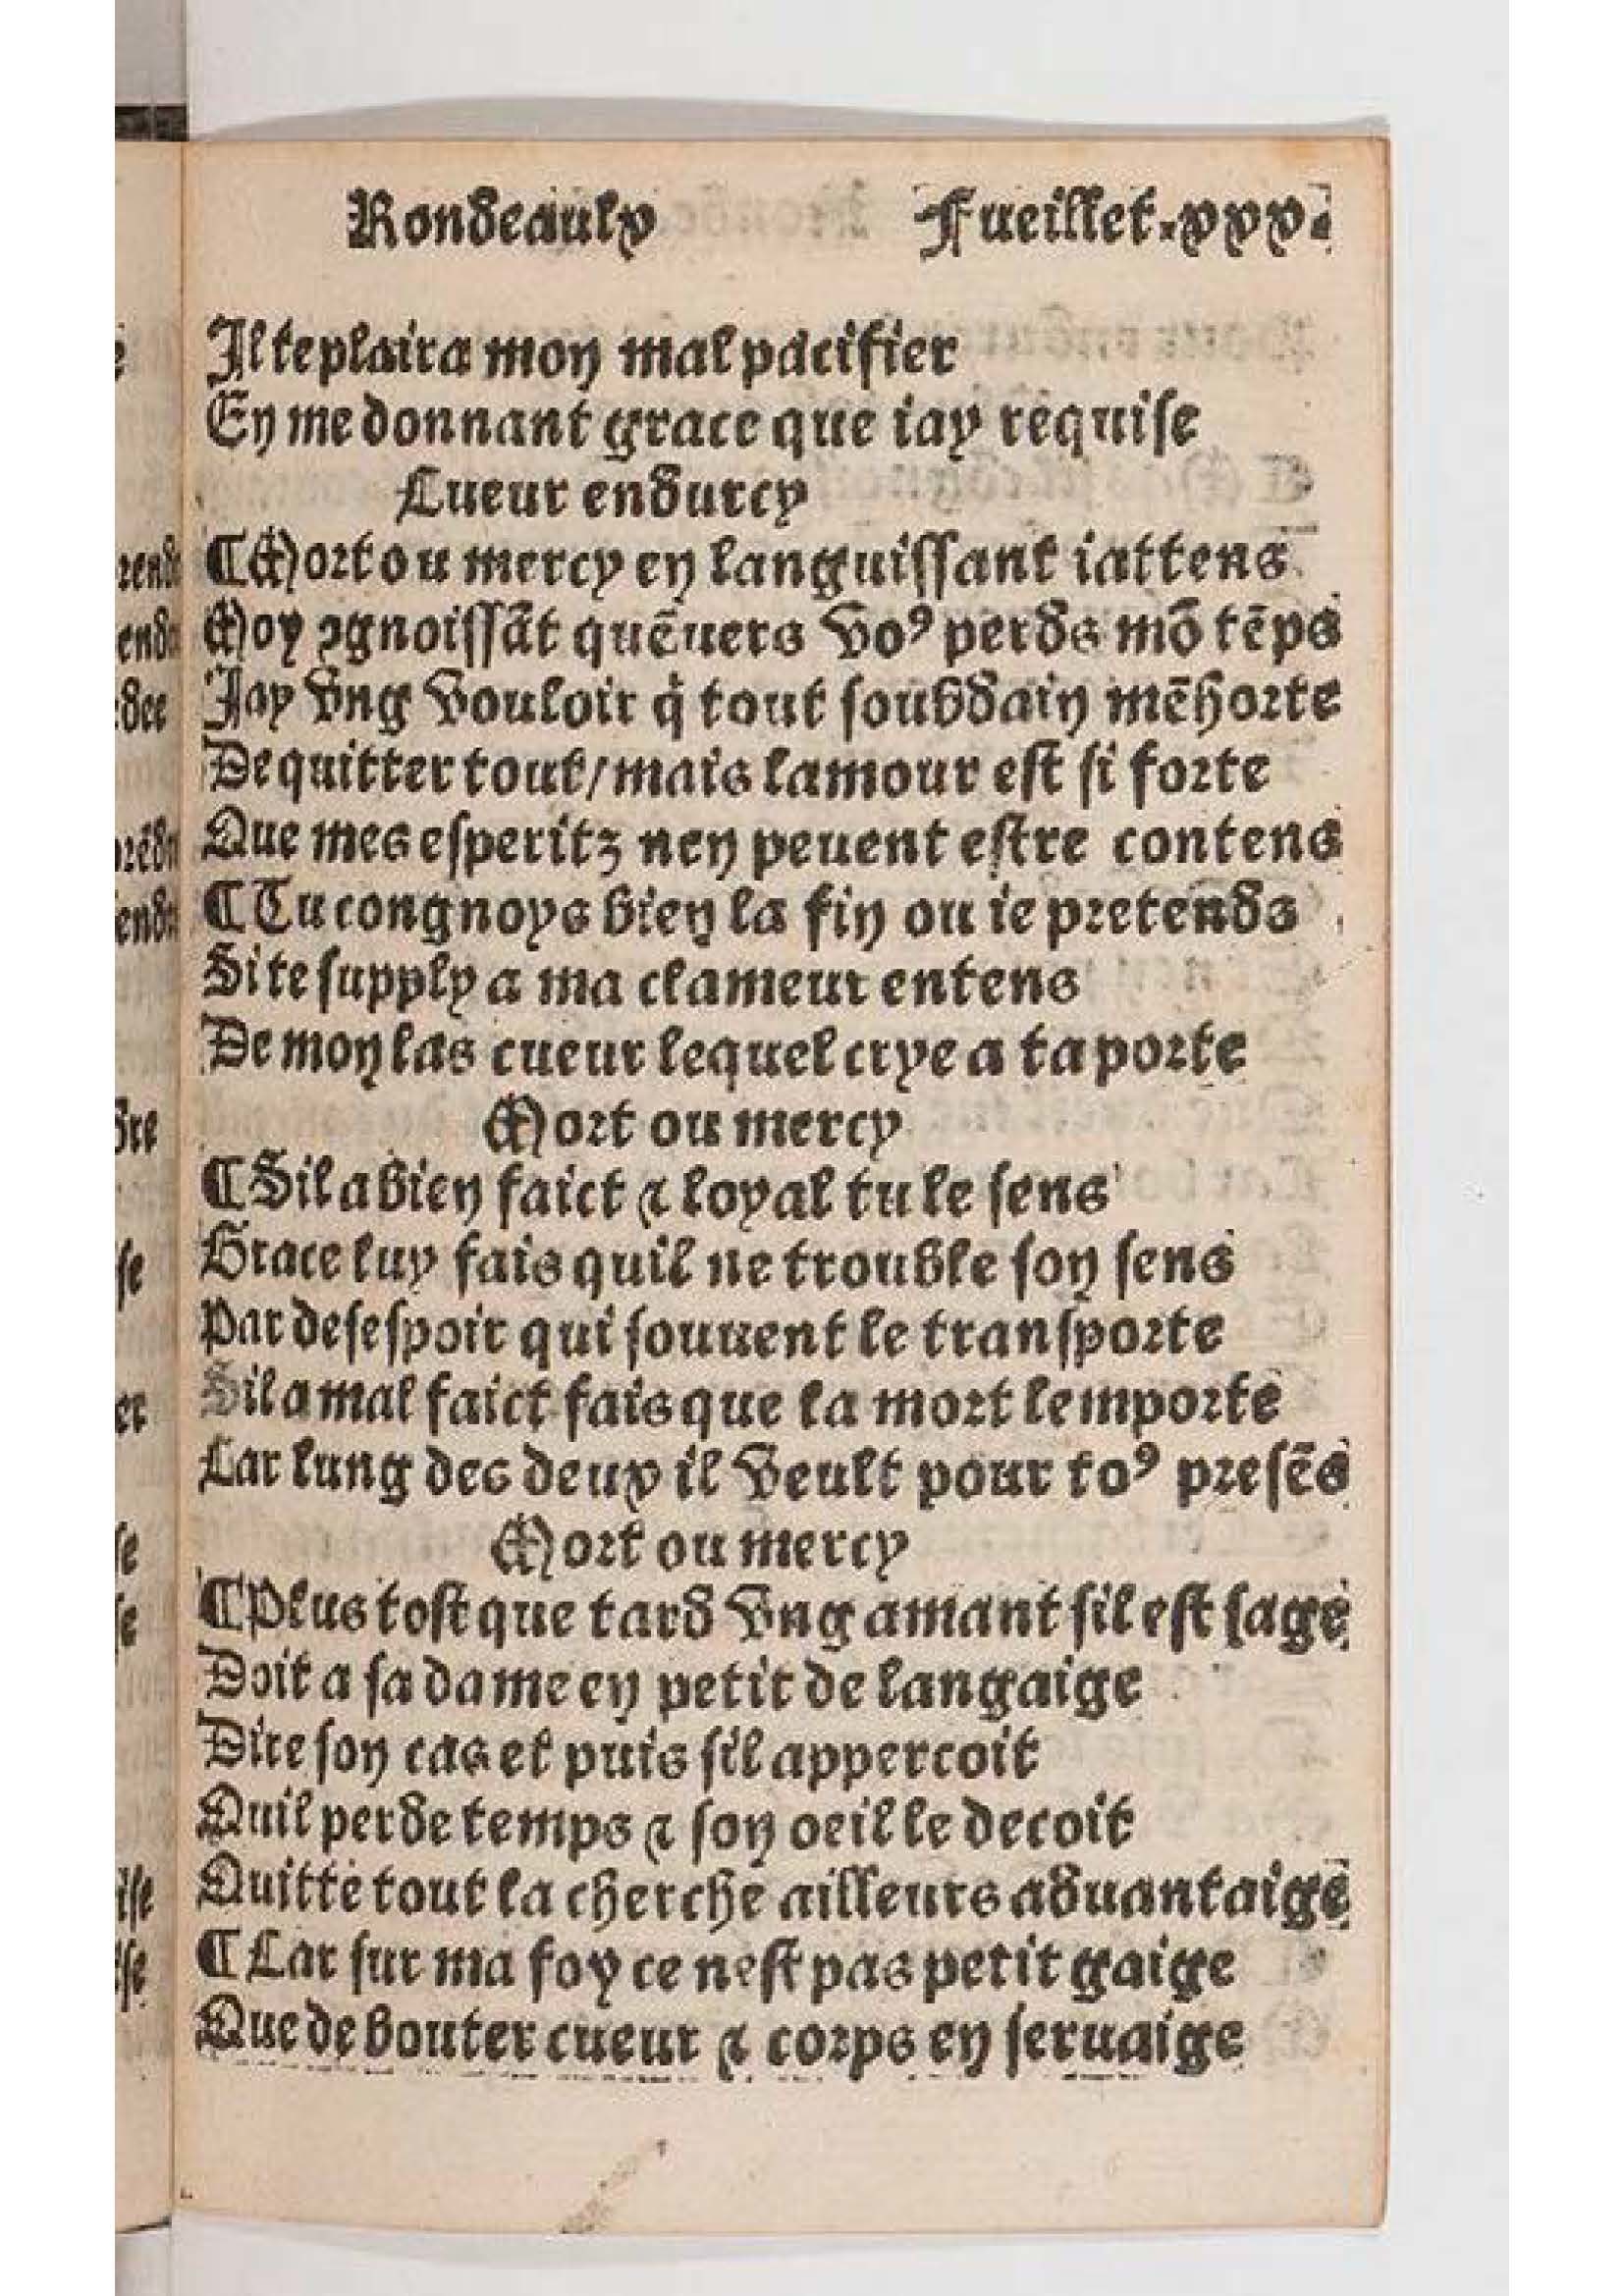 Rondeaulx Fueillet.xxx.
Il te plaira mon mal pacifier
En me donnant grace que iay requise
Cueur endurcy
¶ Mort ou mercy en languissant iattens
Moy ꝯgnoissãt quẽuers voꝰ perds mõ tẽps
Jay vng vouloir q̇ tout soubdain mẽhorte
De quitter tout/mais lamour est si forte
Que mes esperitz nen peuent estre contens
¶ Tu congnoys bien la fin ou ie pretends
Si te supply a ma clameur entens
De mon las cueur lequel crye a ta porte
Mort ou mercy
¶ Sil a bien faict ⁊ loyal tu le sens
Grace luy fais quil ne trouble son sens
Par desespoir qui souuent le transporte
Sil a mal faict fais que la mort lemporte
Car lung des deux il veult pour toꝰ presẽs
Mort ou mercy
¶ Plus tost que tard vng amant sil est sage
Doit a sa dame en petit de langaige
Dire son cas et puis sil appercoit
Quil perde temps ⁊ son oeil le decoit
Quitte tout la cherche ailleurs aduantaige
¶ Car sur ma foy ce nest pas petit gaige
Que de bouter cueur ⁊ corps en seruaige